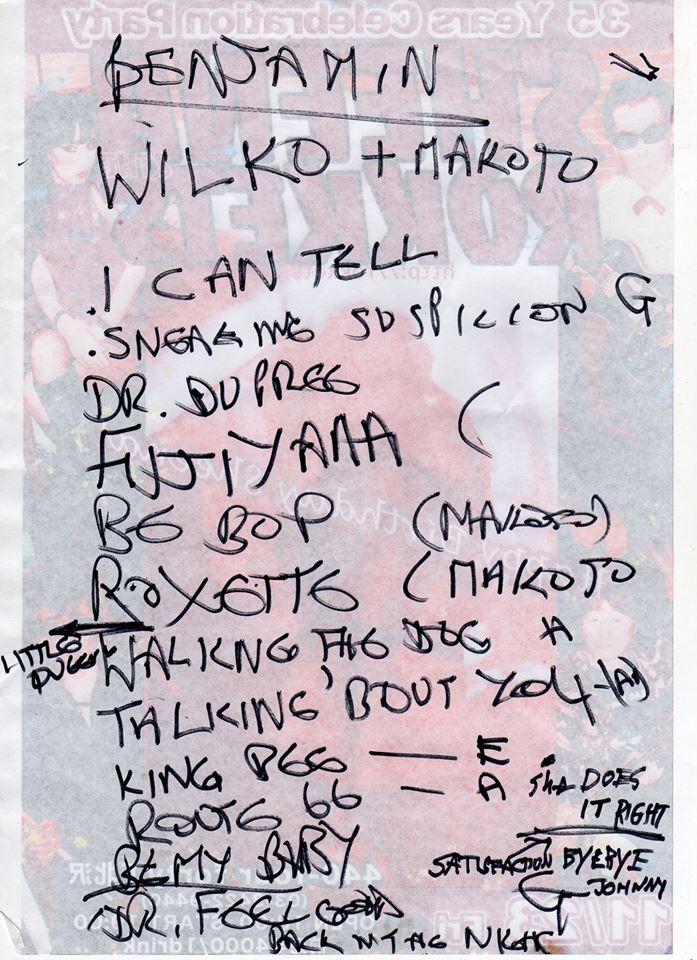 35 Years Celebration Party
BENJAMIN
WILKO + MAKOTO
ROKKETS
http://
. I CAN TELL
. SNEAKING SUSPICCION G
DR. DUPREE
FUJIYAMA (
BE BOP (MAKOTO)
ROXETTE (MAKOTO
WALKING THE DOG A
TALKING 'BOUT YOU (A)
KING BEE — E
ROUTE 66 — A
SHE DOES
IT RIGHT
BE MY BABY
SATISFACTION BYE BYE
JOHNNY
G
DR. FEELGOOD
BACK IN THE NIGHT
11/23 Fri